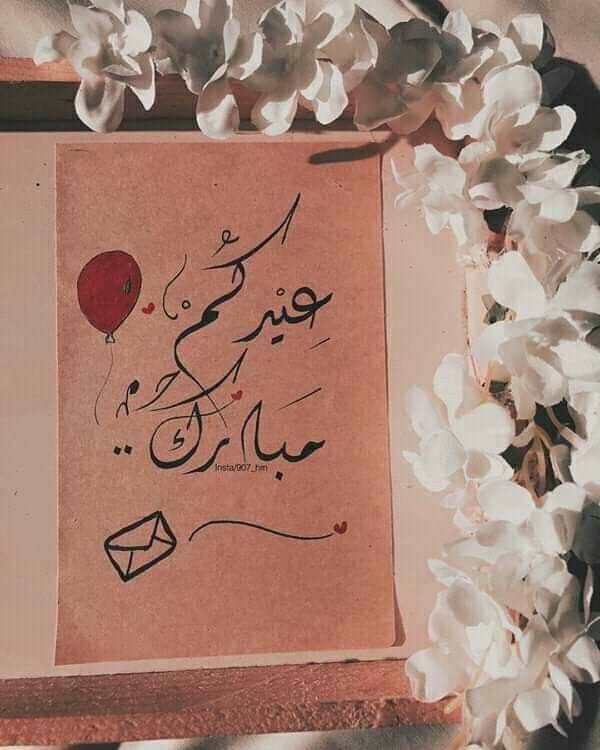 عِيْدكُمْ
مبَارك ..
Insta/907_hm